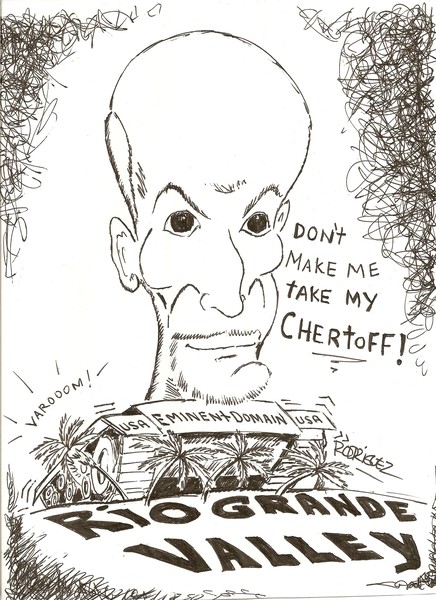 DON't
MAKE ME
tAKE MY
CHERtOFF!
VAROOOM!
USA EMINENt DOMAIN USA
RODRIGUEZ
RIO GRANDE
VALLEY